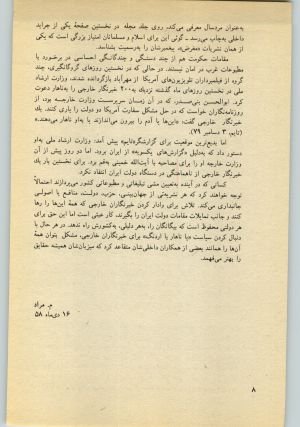 به‌عنوان مردسال معرفی می‌کند، روی جلد مجله در نخستین صفحهٔ یکی از جراید
داخلی به‌چاپ می‌رسد ــ گوئی این برای اسلام و مسلمانان امتیاز بزرگی است که یکی
از همان نشریات «مغرض»، پیغمبرشان را به‌رسمیت بشناسد.
مقامات حکومت هم از چند دستگی و چندگانگی احساسی در برخورد با
مطبوعات غرب در امان نیستند. در حالی که نخستین روزهای گروگانگیری، چند
گروه از فیلمبرداران تلویزیون‌های آمریکا از مهرآباد بازگردانده شدند، وزارت ارشاد
ملی در نخستین روزهای ماه گذشته نزدیک به ۲۰۰ خبرنگار خارجی را به‌ناهار دعوت
کرد. ابوالحسن بنی‌صدر، که در آن زمان سرپرست وزارت خارجه بود، از
روزنامه‌نگاران خواست که در حل مشکل سفارت آمریکا دو دولت را یاری کنند. یک
خبرنگار خارجی گفت: «این‌ها یا آدم را بیرون می‌اندازند یا به‌او ناهار می‌دهند.»
(تایم، ۳ دسامبر ۷۹).
اما بدیع‌ترین موقعیت برای گزارشگر «تایم» پیش آمد: وزارت ارشاد ملی به‌او
دستور داد که به‌دلیل «گزارش‌های یکسویه» از ایران برود. اما دو روز پیش از آن
وزارت خارجه او را برای مصاحبه با آیت‌الله خمینی به‌قم برد. برای نخستین بار یک
خبرنگار خارجی از ناهماهنگی در دستگاه دولت ایران انتقاد نکرد.
کسانی که در آینده به‌تعیین مشی تبلیغاتی و مطبوعاتی کشور می‌پردازند احتمالاً
توجه خواهند کرد که هر نشریه‌ئی از جهان‌بینی، حزب، دولت، منافع یا اصولی
جانبداری می‌کند. تلاش برای وادار کردن خبرنگاران خارجی که همهٔ این‌ها را رها
کنند و جانب تمایلات مقامات دولت ایران را بگیرند، کار عبثی است اما این حق برای
هر دولتی محفوظ است که بیگانگان را، به‌هر دلیلی، به‌کشورش راه ندهد. در هر حال با
دنبال کردن سیاست «یا ناهار یا اردنگ» برای خبرنگاران خارجی، مشکل بتوان همهٔ
آن‌ها را همانند بعضی از همکاران داخلی‌شان متقاعد کرد که میزبان‌شان همیشه حقایق
را بهتر می‌فهمد.
م. مراد
۱۶ دی‌ماه ۵۸
۸